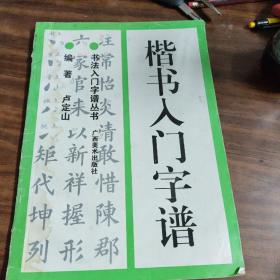 楷书入门字谱
书法入门字谱丛书
广西美术出版社
编著 卢定山
汪常怡炎清敢惜陈郡
六家官来以新祥握形
矩代坤列